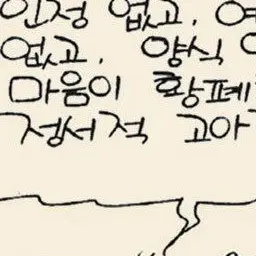 인정 없고, 여
없고, 양식
마음이 황폐
정서적 고아